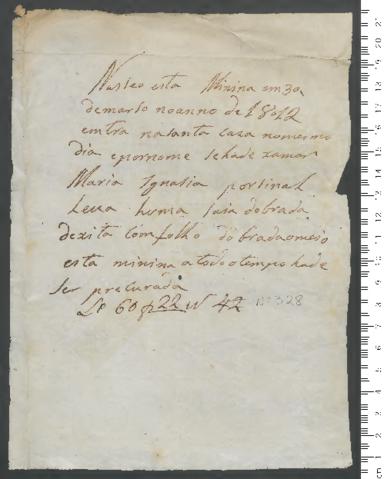 Nasseo esta Minina em 30
demarso no anno de 1812
emtra nasanta caza nomesmo
dia epornome sehade xamar
Maria Ignasia porsinal
Leva huma saia dobrada
dexita com folho dobradaomeio
esta minina atodootempohade
ser precurada
Lº 60 p 22 Nº 42 Nº 328
1 2 3 4 5 6 7 8 9 10 11 12 13 14 15 16 17 18 19 20
cm